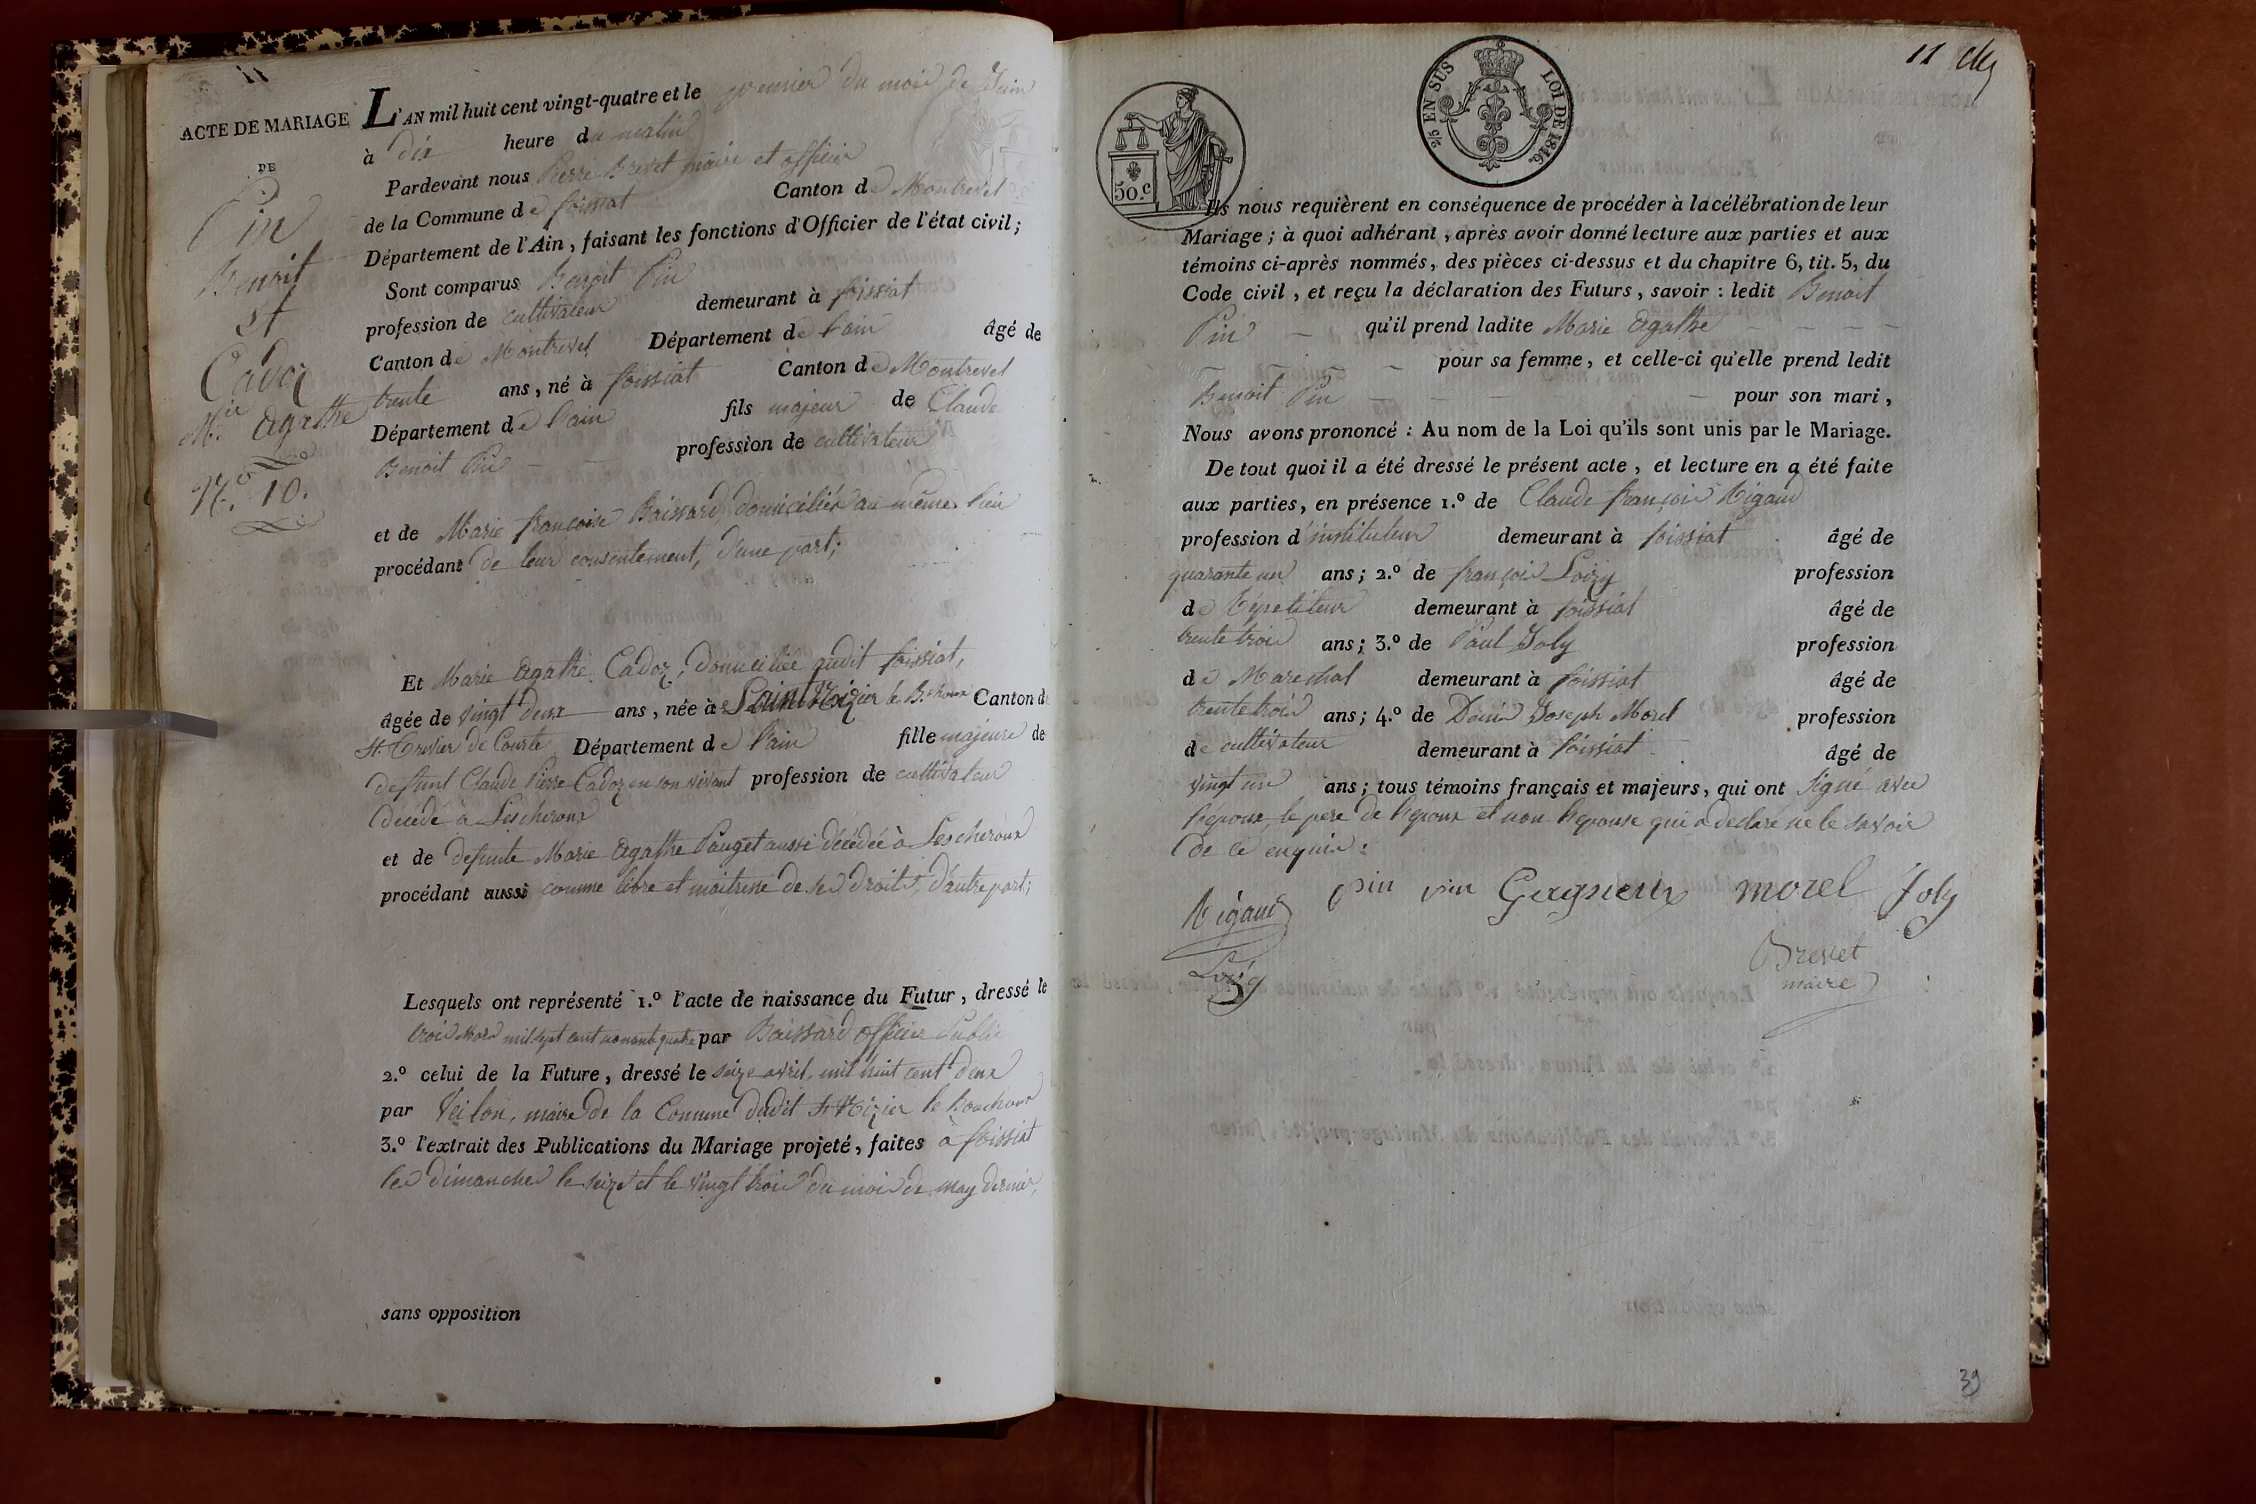 11
ACTE DE MARIAGE
DE
Pin
Benoit
et
Cadoz
M.ie Agathe
N.o 10.
L'AN mil huit cent vingt-quatre et le premier du mois de Juin
à dix heure du matin
Pardevant nous Pierre Brevet maire et officier
de la Commune de foissiat Canton de Montrevel
Département de l'Ain, faisant les fonctions d'Officier de l'état civil;
Sont comparus Benoit Pin
profession de cultivateur demeurant à foissiat
Canton de Montrevel Département de l'ain âgé de
trente ans, né à foissiat Canton de Montrevel
Département de l'ain fils majeur de Claude
Benoit Pin profession de cultivateur
et de Marie françoise Baissard, domiciliés au même lieu
procédant de leur consentement, d'une part;
Et Marie Agathe Cadoz, domiciliée audit foissiat,
âgée de vingt deux ans, née à Saint Nizier le B.choux Canton de
St. Trivier de Courte Département de l'ain fille majeure de
defunt Claude Pierre Cadoz en son vivant profession de cultivateur
décédé à Lescheroux
et de defunte Marie Agathe Pauget aussi décédée à Lescheroux
procédant aussi comme libre et maitresse de ses droits, d'autre part;
Lesquels ont représenté 1.º l'acte de naissance du Futur, dressé le
trois mars mil sept cent nonante quatre par Baissard officier Public
2.º celui de la Future, dressé le seize avril mil huit cent deux
par Veilon, maire de la Commune dudit St Nizier le bouchoux
3.º l'extrait des Publications du Mariage projeté, faites à foissiat
les dimanches le seize et le vingt trois du mois de may dernier,
sans opposition
11
2/5 EN SUS
LOI DE 1816.
50.c
Ils nous requièrent en conséquence de procéder à la célébration de leur
Mariage; à quoi adhérant, après avoir donné lecture aux parties et aux
témoins ci-après nommés, des pièces ci-dessus et du chapitre 6, tit. 5, du
Code civil, et reçu la déclaration des Futurs, savoir: ledit Benoit
Pin qu'il prend ladite Marie Agathe
pour sa femme, et celle-ci qu'elle prend ledit
Benoit Pin pour son mari,
Nous avons prononcé: Au nom de la Loi qu'ils sont unis par le Mariage.
De tout quoi il a été dressé le présent acte, et lecture en a été faite
aux parties, en présence 1.º de Claude françois Rigaud
profession d'instituteur demeurant à foissiat âgé de
quarante un ans; 2.º de françois Loizy profession
de Répetiteur demeurant à foissiat âgé de
trente trois ans; 3.º de Paul Joly profession
de Marechal demeurant à foissiat âgé de
trente trois ans; 4.º de Denis Joseph Morel profession
de cultivateur demeurant à foissiat âgé de
vingt un ans; tous témoins français et majeurs, qui ont signé avec
l'epoux, le pere de l'epoux et non l'epouse qui a declaré ne le savoir
de ce enquis:
Rigaud pin pin Gagneux morel Joly
Loizy Brevet
maire
39